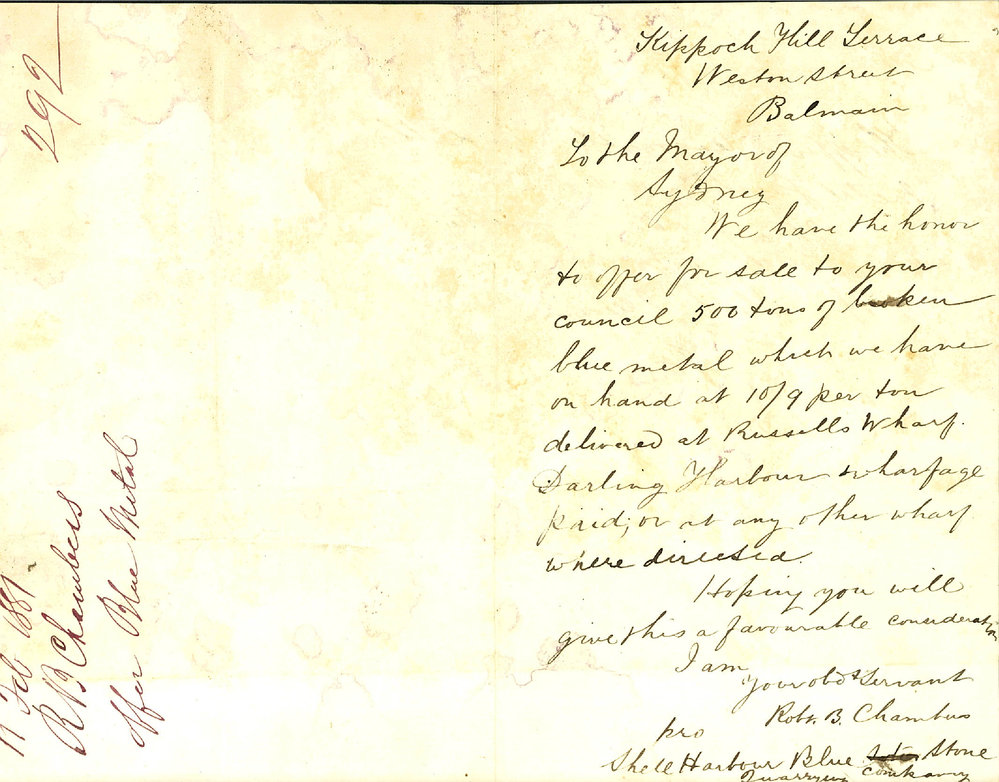 292
Feb 1881
R B Chambers
offer Blue Metal
Kippoch Hill Terrace
Weston Street
Balmain
To the Mayor of
Sydney
We have the honor
to offer for sale to your
council 500 tons of broken
blue metal which we have
on hand at 10/9 per ton
delivered at Russells Wharf.
Darling Harbour wharfage
paid; or at any other wharf
where directed.
Hoping you will
give this a favourable consideration
I am
Your obdt Servant
Robt. B. Chambers
pro
Shell Harbour Blue Stone
Quarrying company